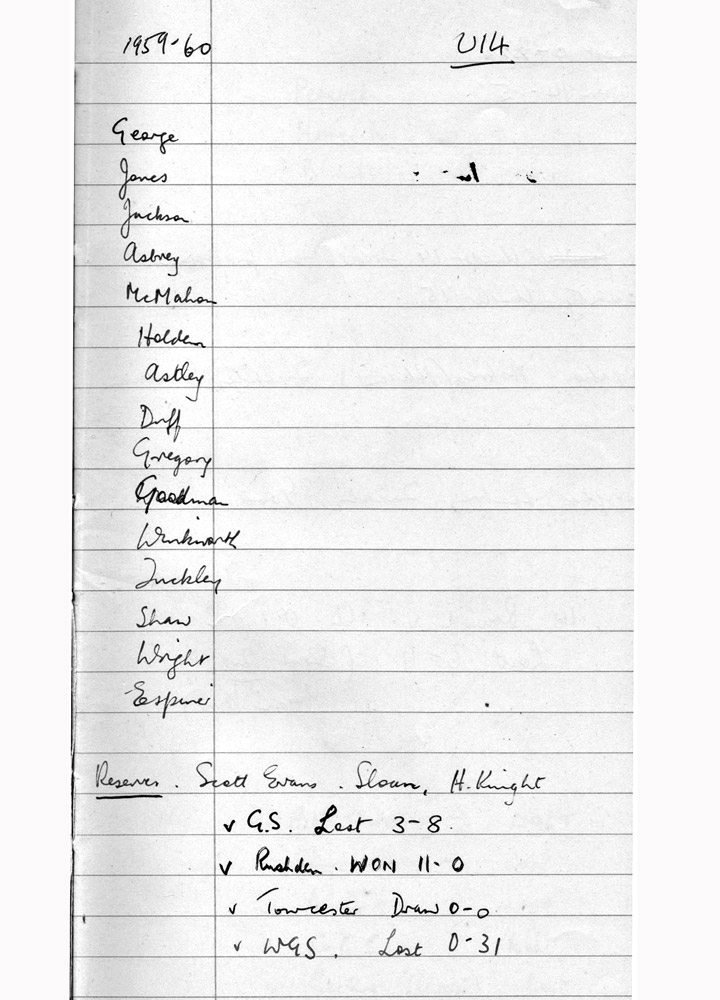 1959-60 U14
George
Jones
Jackson
Asbrey
McMahon
Holden
Astley
Duff
Gregory
Goodman
Winkworth
Tuckley
Shaw
Wright
Espiner
Reserves. Scott Evans. Sloan, H. Knight
v G.S. Lost 3-8.
v Rushden. WON 11-0
v Towcester Draw 0-0
v WGS. Lost 0-31